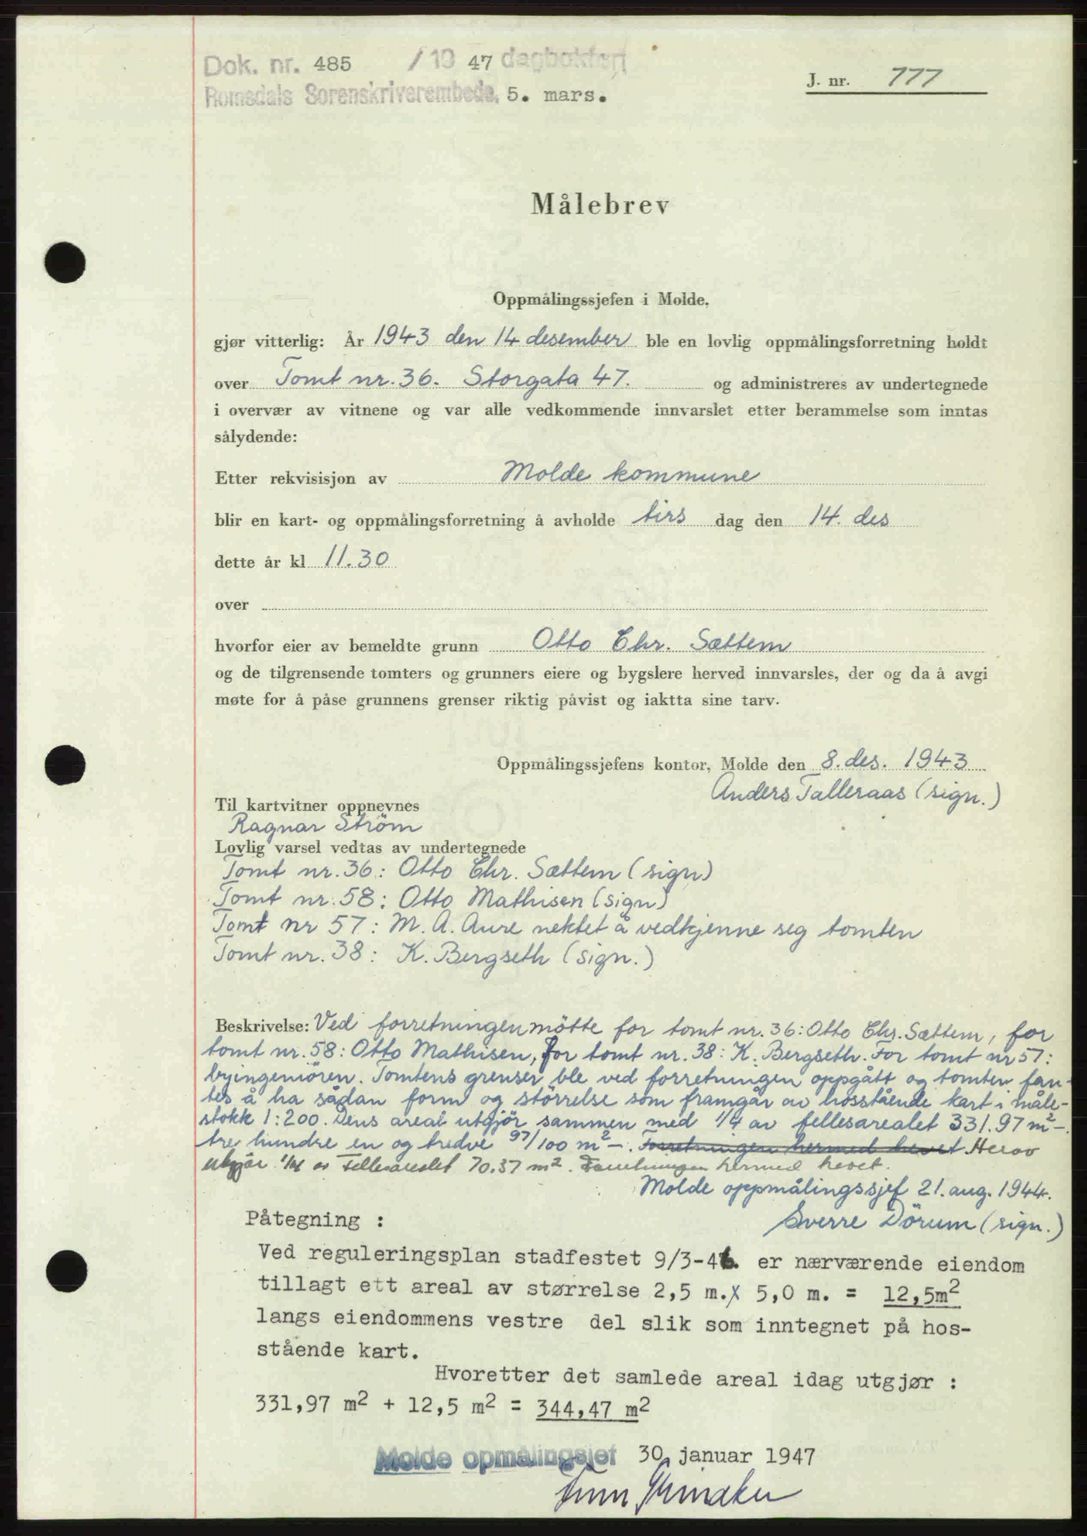 Dok. nr. 485 /19 47 dagbokført
Romsdals Sorenskriverembede, 5. mars.
J. nr. 777
Målebrev
Oppmålingssjefen i Molde.
gjør vitterlig: År 1943 den 14 desember ble en lovlig oppmålingsforretning holdt
over Tomt nr. 36. Storgata 47. og administreres av undertegnede
i overvær av vitnene og var alle vedkommende innvarslet etter berammelse som inntas
sålydende:
Etter rekvisisjon av Molde kommune
blir en kart- og oppmålingsforretning å avholde tirs dag den 14. des
dette år kl 11.30
over
hvorfor eier av bemeldte grunn Otto Chr. Sættem
og de tilgrensende tomters og grunners eiere og bygslere herved innvarsles, der og da å avgi
møte for å påse grunnens grenser riktig påvist og iaktta sine tarv.
Oppmålingssjefens kontor, Molde den 8. des. 1943
Anders Talleraas (sign.)
Til kartvitner oppnevnes
Ragnar Ström
Lovlig varsel vedtas av undertegnede
Tomt nr. 36: Otto Chr. Sættem (sign)
Tomt nr. 58: Otto Mathisen (sign)
Tomt nr 57: M. A. Aure nektet å vedkjenne seg tomten
Tomt nr. 38: K. Bergseth (sign.)
Beskrivelse: Ved forretningen mötte for tomt nr. 36: Otto Chr. Sættem, for
tomt nr. 58: Otto Mathisen, for tomt nr. 38: K. Bergseth. For tomt nr 57:
byingeniören. Tomtens grenser ble ved forretningen oppgått og tomten fan-
tes å ha sådan form og störrelse som framgår av hosstående kart i måle-
stokk 1:200. Dens areal utgjör sammen med 1/4 av fellesarealet 331.97 m² -.
tre hundre en og tredve 97/100 m² -. Forretningen hermed hevet Herav
utgjör 1/4 av Fellesarealet 70.37 m². Forretningen hermed hevet.
Molde oppmålingssjef 21. aug. 1944.
Sverre Dörum (sign.)
Påtegning :
Ved reguleringsplan stadfestet 9/3-46 er nærværende eiendom
tillagt ett areal av størrelse 2,5 m. x 5,0 m. = 12,5m2
langs eiendommens vestre del slik som inntegnet på hos-
stående kart.
Hvoretter det samlede areal idag utgjør :
331,97 m2 + 12,5 m2 = 344,47 m2
Molde opmålingsjef 30 januar 1947